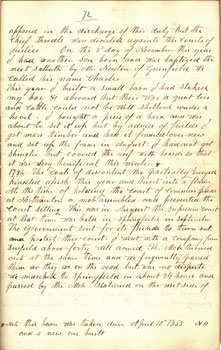 72
opposed in the discharge of this duty But the
Chief Trouble was directed against the Courts of
Justice On the 5th day of November this year
I had another son born, and was baptized the
next sabbath by Mr Newton of Greenfield We
Called his name Charles
This year I built a small barn I had stakes
my hay 41 abroad but there was a great loss
and Cattle could not be well sheltered under a
hovel. I bought a piece of a barn and was
about to set it up but by advice of friends I
got more timber and built frame over new
and set up the frame in august I had not got
shingles but covered the roof with boards so that
it was very beneficial this winter
1786 The Coals of discontent tho partially smothered
kindled afresh this year and burst into a flame
At the time of holding the Court of Common pleas
at Northampton a mob assembled and prevented the
Court sitting This was in August the supreme Court
at that time was held in Springfield in September
The Government sent for its friends to turn out
and protect their Court I went with a company from
Deerfield above forty well armed The Mob turned
out at the same time and we frequently passed
them as they on the road but was no dispute
We marched to Springfield in about 24 hours and
passed by the Mob stationed on the west side of
this barn was taken down April 10th 1853
and a new one built